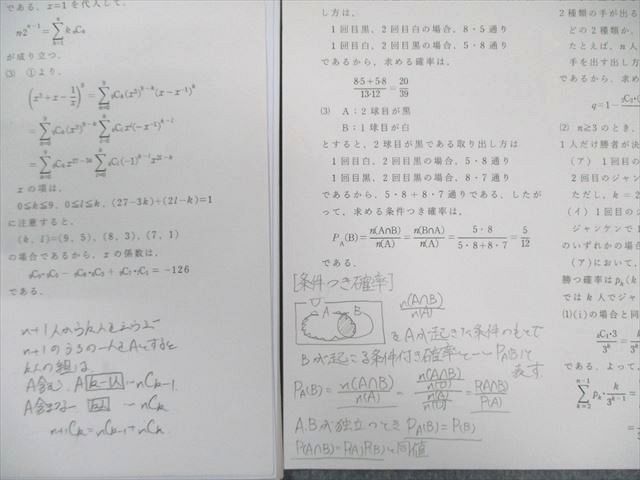 である．x=1 を代入して，
n2^{n-1} = \sum_{k=1}^{n} k {}_nC_k
が成り立つ．
(3) ①より，
\left(x^2+x-\frac{1}{x}\right)^9 = \sum_{k=0}^{9} {}_9C_k (x^2)^{9-k}(x-x^{-1})^k
= \sum_{k=0}^{9} {}_9C_k (x^2)^{9-k} \sum_{l=0}^{k} {}_kC_l x^l(-x^{-1})^{k-l}
= \sum_{k=0}^{9} {}_9C_k x^{27-3k-9} \sum_{l=0}^{k} {}_kC_l (-1)^{k-l} x^{2l-k}
x の項は，
0≦k≦9，0≦l≦k，(27−3k)+(2l−k)=1
に注意すると，
(k, l)=(9, 5)，(8, 3)，(7, 1)
の場合であるから，x の係数は，
である．
n+1のうちの一人をAとすると
k人の組は
A含む、A [k-1人] … nCk-1
n+1Ck = nCk-1 + nCk
し方は，
1回目黒，2回目白の場合，8・5通り
1回目白，2回目黒の場合，5・8通り
であるから，求める確率は，
\frac{8・5+5・8}{13・12} = \frac{20}{39}
(3) A：2球目が黒
B：1球目が白
とすると，2球目が黒である取り出し方は
1回目白，2回目黒の場合，5・8通り
1回目黒，2回目黒の場合，8・7通り
であるから，5・8+8・7通りである．したが
って，求める条件つき確率は，
P_A(B) = \frac{n(A∩B)}{n(A)} = \frac{n(B∩A)}{n(A)} = \frac{5・8}{5・8+8・7} = \frac{5}{12}
である．
[条件つき確率]
A B \frac{n(A∩B)}{n(A)}
をAが起きた条件のもとで
Bが起こる条件付き確率といいPA(B)で
表す
PA(B) = \frac{n(A∩B)}{n(A)} = \frac{\frac{n(A∩B)}{n(U)}}{\frac{n(A)}{n(U)}} = \frac{P(A∩B)}{P(A)}
A.Bが独立のとき PA(B) = P(B)
P(A∩B) = P(A)P(B)と同値
2種類の手が出る
どの2種類か，
たとえば，n人
手を出す出し方
(2) n≧3のとき，
1人だけ勝者が決
(ア) 1回目の
2回目のジャン
ただし，k=2
(イ) 1回目の
ジャンケンで1
のいずれかの場合
(ア)において，
勝つ確率は p_k(k
では k 人でジャ
(1)(i)の場合と同
\frac{{}_kC_1・3}{3^k} = \frac{k}{3^{k-1}}
である．よって，
\sum_{k=2}^{n-1} p_k・\frac{k}{3^{k-1}}